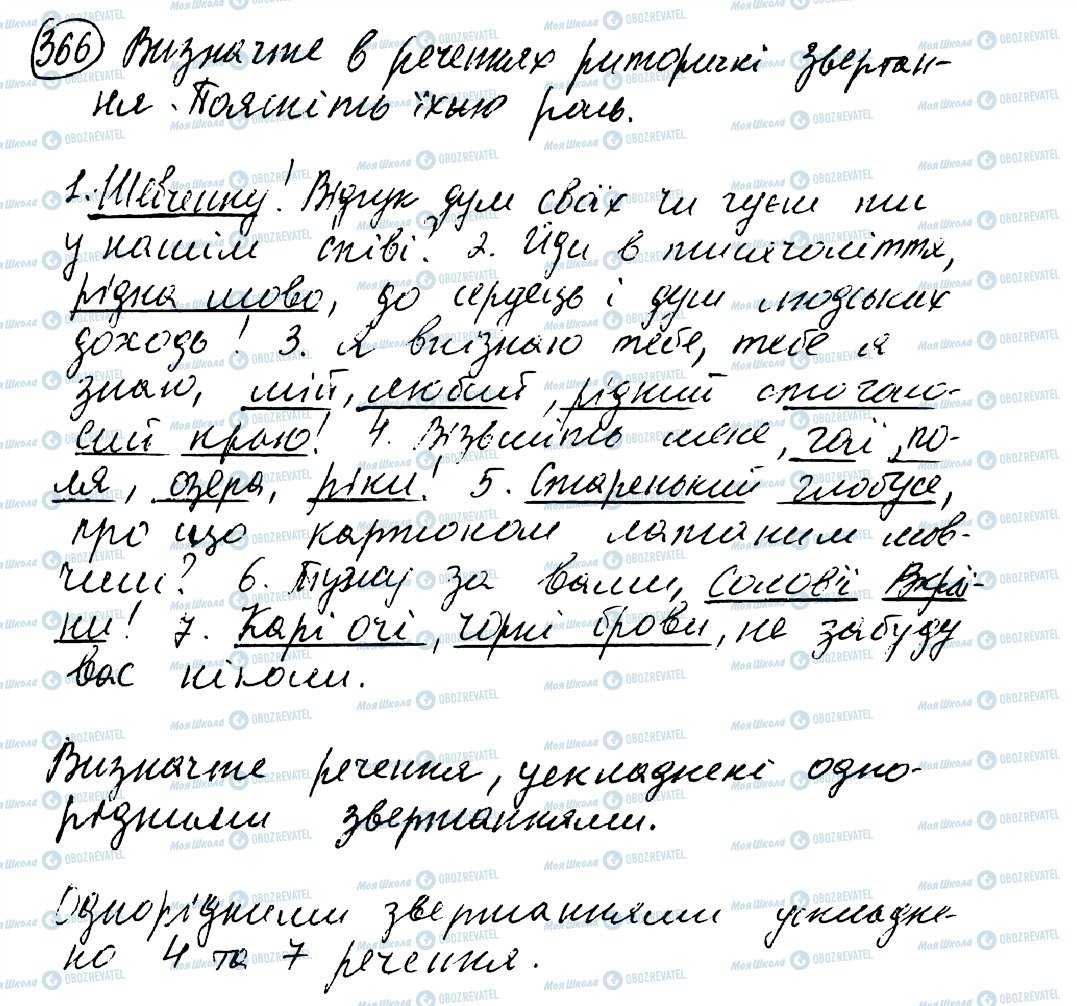 366 Визначте в реченнях риторичні звертан-
ня. Поясніть їхню роль.
1. Шевченку! Відгук дум своїх чи чуєш ти
у нашім співі? 2. Йди в тисячоліття,
рідна мово, до сердець і дум людських
доходь! 3. Я впізнаю тебе, тебе я
знаю, мій, любий, рідний стоголо-
сий краю! 4. Візьміть мене, гаї, по-
ля, озера, ріки! 5. Старенький глобусе,
про що картоном латаним мов-
чиш? 6. Тужу за вами, солов'ї Вкраї-
ни! 7. Карі очі, чорні брови, не забуду
вас ніколи.
Визначте речення, ускладнені одно-
рідними звертаннями.
Однорідними звертаннями ускладне-
но 4 та 7 речення.